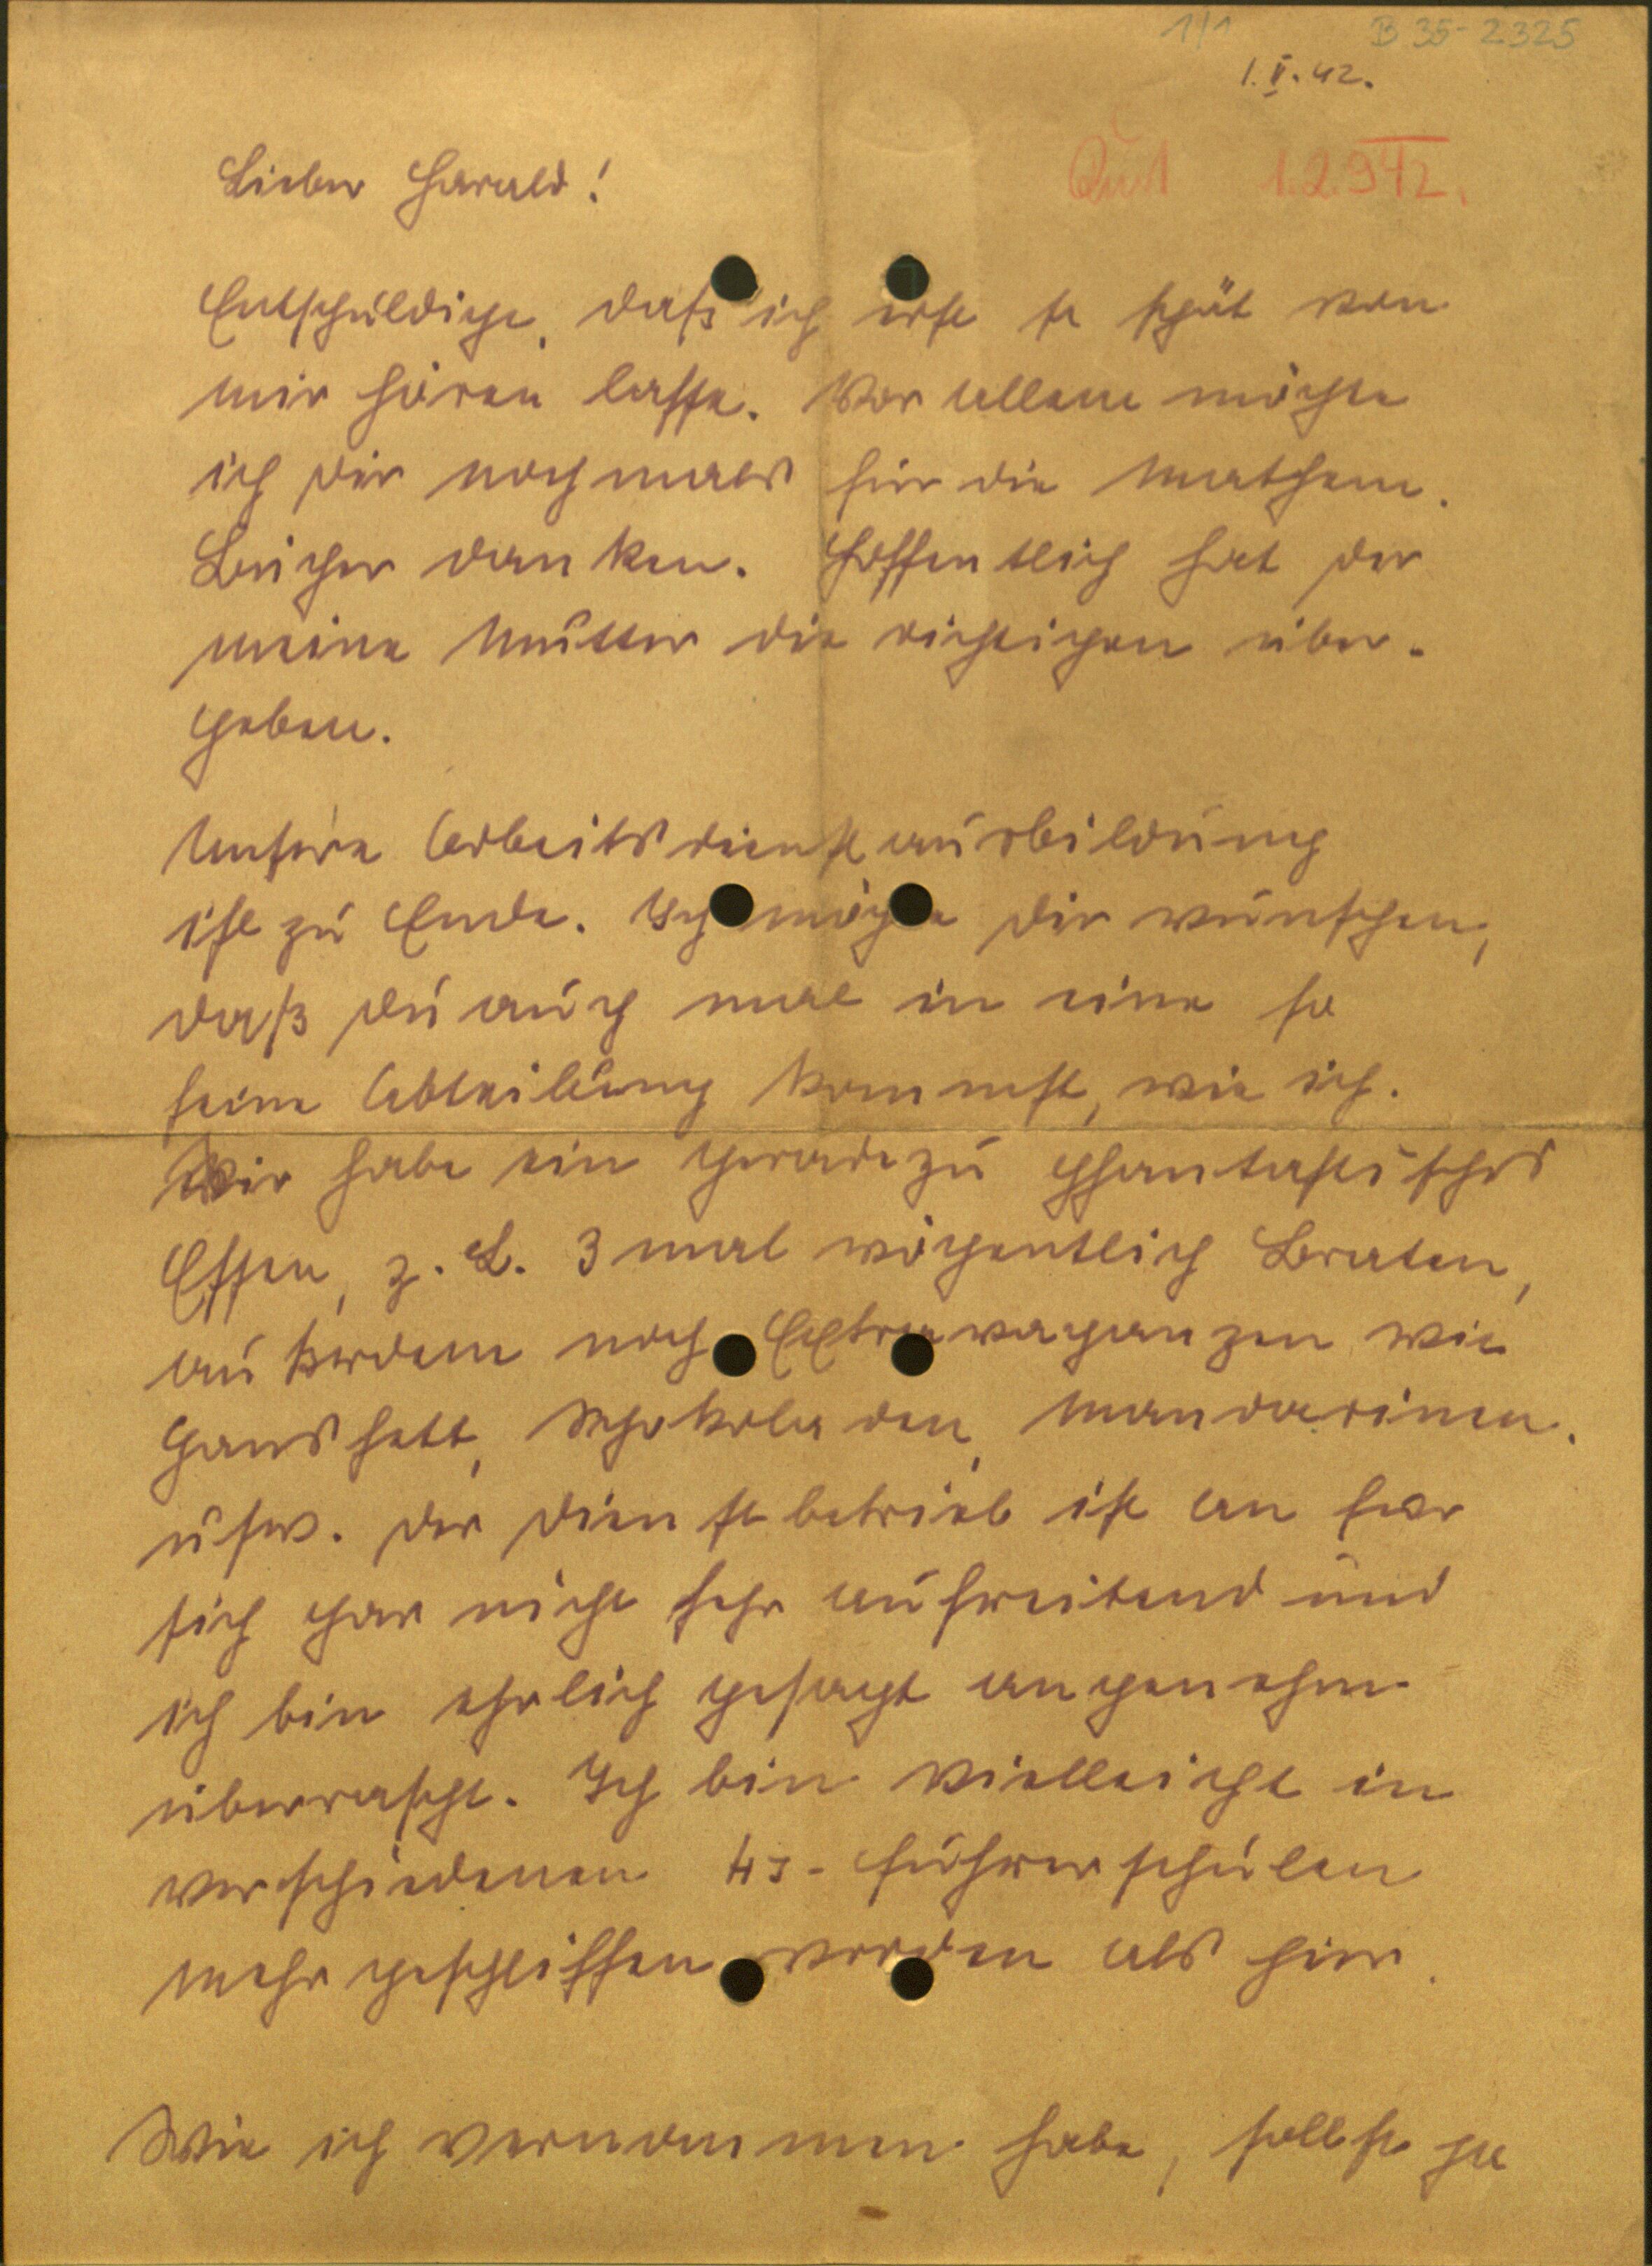 1/1 B 35-2325
1. II. 42.
Lieber Harald! 1.2.942.
Entschuldige, daß ich erst so spät von
mir hören lasse. Vor allem möchte
ich dir nochmals für die Mathem.
Bücher danken. Hoffentlich hat dir
meine Mutter die richtigen über-
geben.
Unsere Arbeitsdienstausbildung
ist zu Ende. Ich möchte dir wünschen,
daß du auch mal in eine so
feine Abteilung kommst, wie ich.
Wir habe ein geradezu phantastisches
Essen, z. B. 3 mal wöchentlich Braten,
außerdem noch Extravaganzen wie
Gansfett, Schokoladen, Mandarinen.
usw. Der Dienstbetrieb ist an für
sich gar nicht sehr aufreibend und
ich bin ehrlich gesagt angenehm
überrascht. Ich bin vielleicht in
verschiedenen HJ-Führerschulen
mehr geschliffen worden als hier.
Wie ich vernommen habe, sollst ja